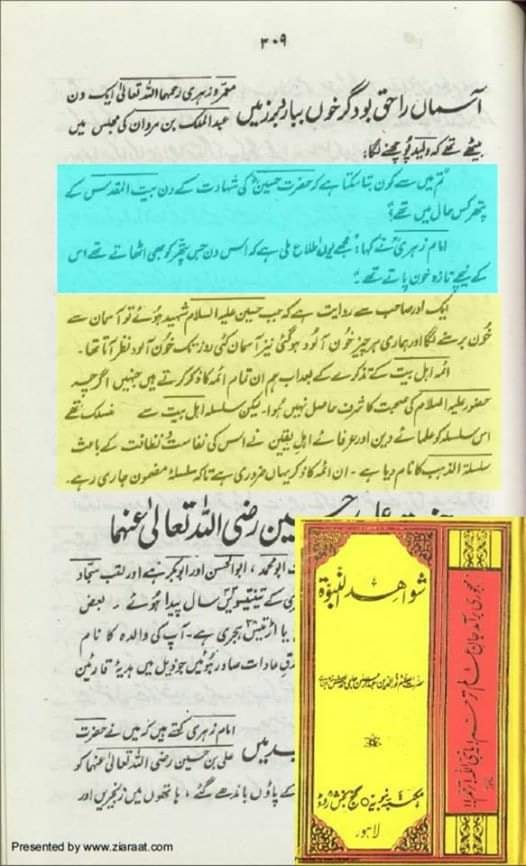 ۳۰۹
آسماں را حق بود گر خوں ببارد بر زمیں
معمر و زہری رحمہما اللہ تعالیٰ ایک دن
عبد الملک بن مروان کی مجلس میں
بیٹھے تھے کہ ولید پوچھنے لگا:
"تم میں سے کون بتا سکتا ہے کہ حضرت حسینؓ کی شہادت کے دن بیت المقدس کے
پتھر کس حال میں تھے؟"
امام زہریؒ نے کہا: "مجھے یوں اطلاع ملی ہے کہ اس دن جس پتھر کو بھی اٹھاتے تھے اس
کے نیچے تازہ خون پاتے تھے۔"
ایک اور صاحب سے روایت ہے کہ جب حسین علیہ السلام شہید ہوئے تو آسمان سے
خون برسنے لگا اور ہماری ہر چیز خون آلود ہوگئی نیز آسمان کئی روز تک خون آلود نظر آتا تھا۔
ائمہ اہل بیت کے تذکرے کے بعد اب ہم ان تمام ائمہ کا ذکر کرتے ہیں جنہیں اگرچہ
حضور علیہ السلام کی صحبت کا شرف حاصل نہیں ہوا۔ لیکن سلسلہ اہل بیت سے منسلک تھے
اس سلسلہ کو علمائے دین اور عرفائے اہل یقین نے اس کی نفاست و نظافت کے باعث
سلسلۃ الذہب کا نام دیا ہے۔ ان ائمہ کا ذکر یہاں ضروری ہے تاکہ سلسلۂ مضمون جاری رہے۔
حسین رضی اللہ تعالیٰ عنہما
ابو محمد، ابوالحسن اور ابوبکر ہے اور لقب سجاد
کے تینتیسویں سال پیدا ہوئے۔ بعض
یا اڑتیس ہجری ہے۔ آپ کی والدہ کا نام
عادات صادر ہوئیں جو ذیل میں ہدیۂ قارئین
امام زہری کہتے ہیں کہ میں نے حضرت
علی بن حسین رضی اللہ تعالیٰ عنہما کو
کے پاؤں باندھے گئے، ہاتھوں میں زنجیریں اور
شواہد النبوۃ
لاہور
Presented by www.ziaraat.com